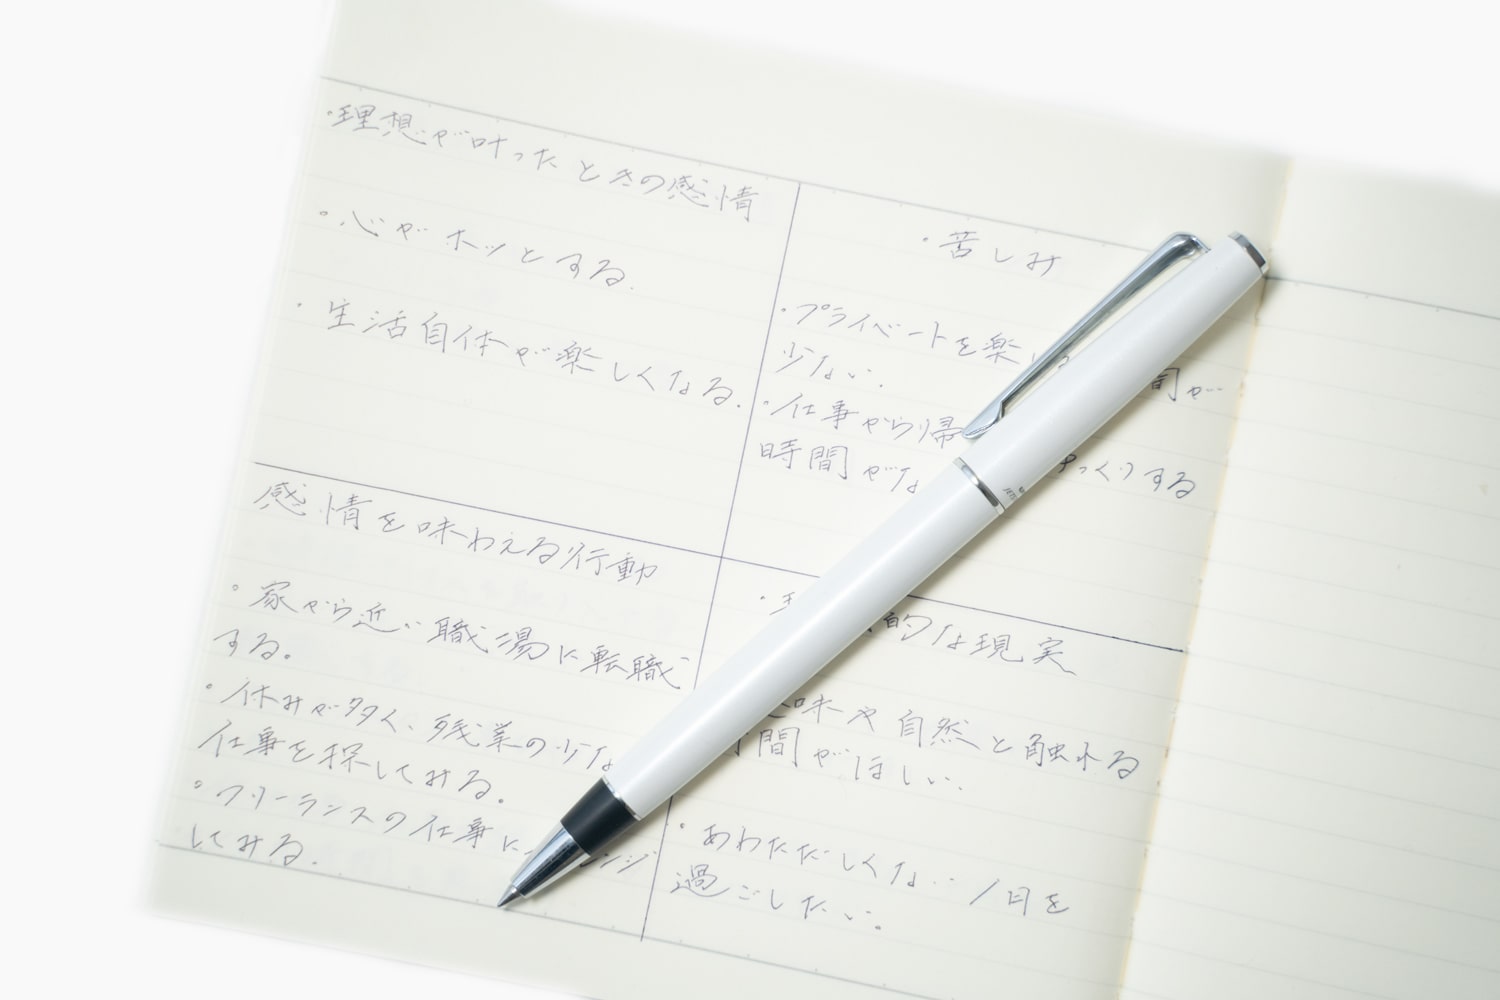 ・理想が叶ったときの感情
・心がホッとする.
・生活自体が楽しくなる.
・苦しみ
・プライベートを楽し 間が
少ない.
・仕事から帰 ゆっくりする
時間がな
感情を味わえる行動
・家から近い職場に転職
する。
・休みが多く、残業の少な
仕事を探してみる。
・フリーランスの仕事に ンジ
してみる.
・ 的な現実
味や自然と触れる
時間がほしい.
・あわただしくない1日を
過ごしたい。